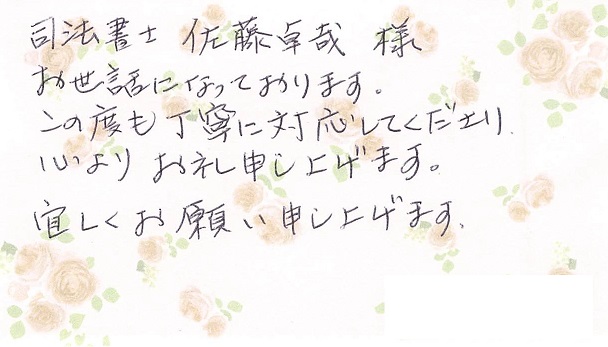 司法書士 佐藤卓哉 様
お世話になっております。
この度も丁寧に対応してくださり、
心よりお礼申し上げます。
宜しくお願い申し上げます。